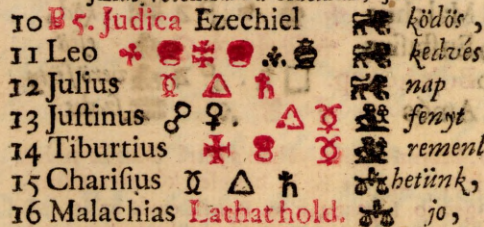 10 B 5. Judica Ezechiel ködös,
11 Leo kedvés
12 Julius ☿ △ ♄ nap
13 Juſtinus ☍ ♀. △ ☿ fenyt
14 Tiburtius ☿ rement
15 Chariſius ☿ △ ♄ hetünk,
16 Malachias Lathat hold. jo,